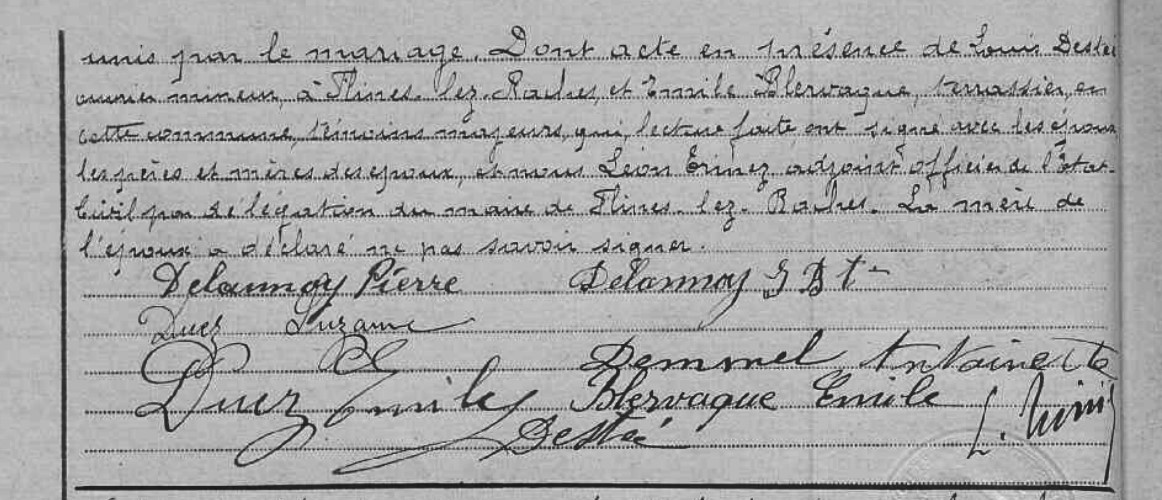 unis par le mariage. Dont acte en présence de Louis Destéi
ouvrier mineur, à Flines-lez-Raches, et Emile Blervaque, terrassier, en
cette commune, témoins majeurs, qui, lecture faite, ont signé avec les époux
les pères et mères des époux, et nous Léon adjoint officier de l'état-
Civil par délégation du maire de Flines-lez-Raches. La mère de
l'époux a déclaré ne pas savoir signer.
Delannoy Pierre Delannoy J Bte
Duez Suzanne
Demmel Antoinette
Duez Emile Blervaque Emile
Destéi